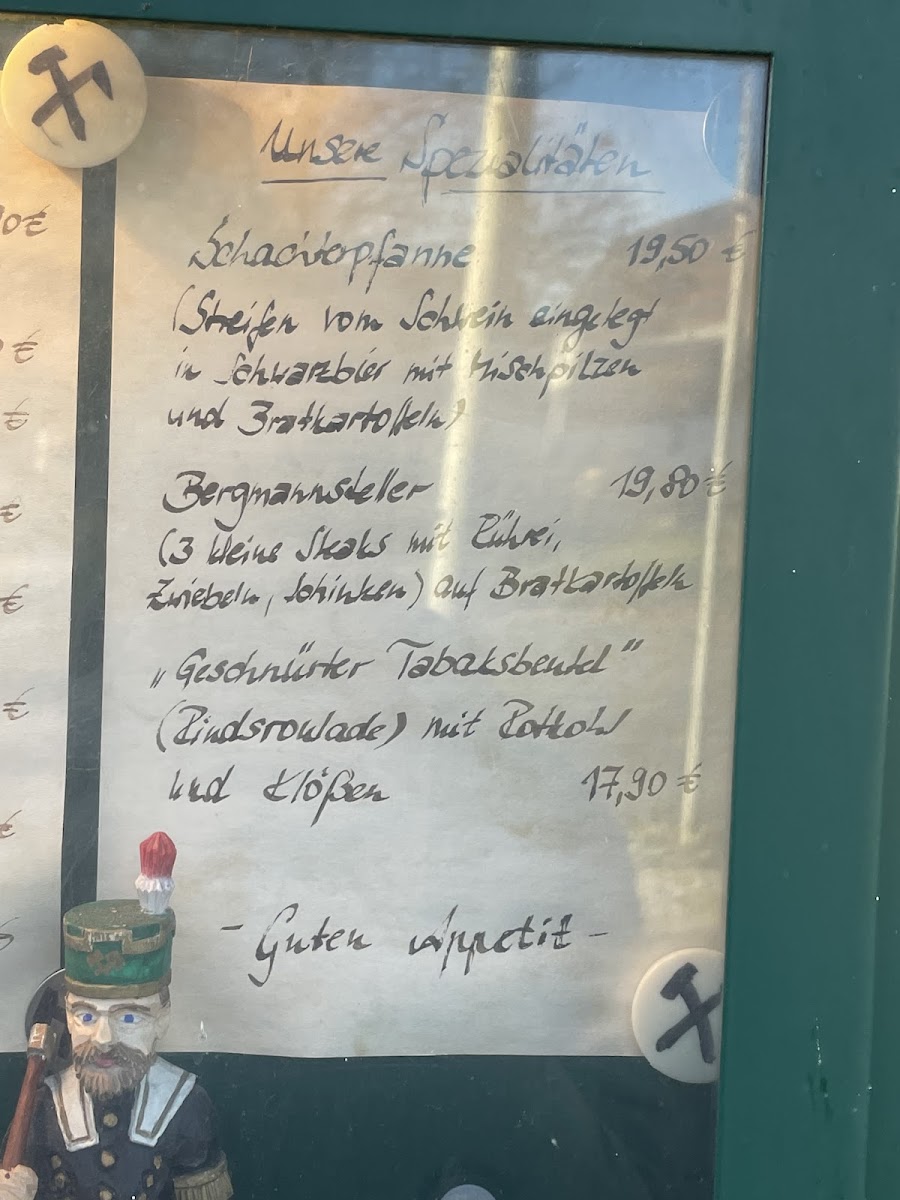 Unsere Spezialitäten
Schachterpfanne 19,50 €
(Streifen vom Schwein eingelegt
in Schwarzbier mit Mischpilzen
und Bratkartoffeln)
Bergmannsteller 19,80 €
(3 kleine Steaks mit Rührei,
Zwiebeln, Schinken) auf Bratkartoffeln
„Geschnürter Tabaksbeutel"
(Rindsroulade) mit Rotkohl
und Klößen 17,90 €
- Guten Appetit -
0 €
€
€
€
€
€
€